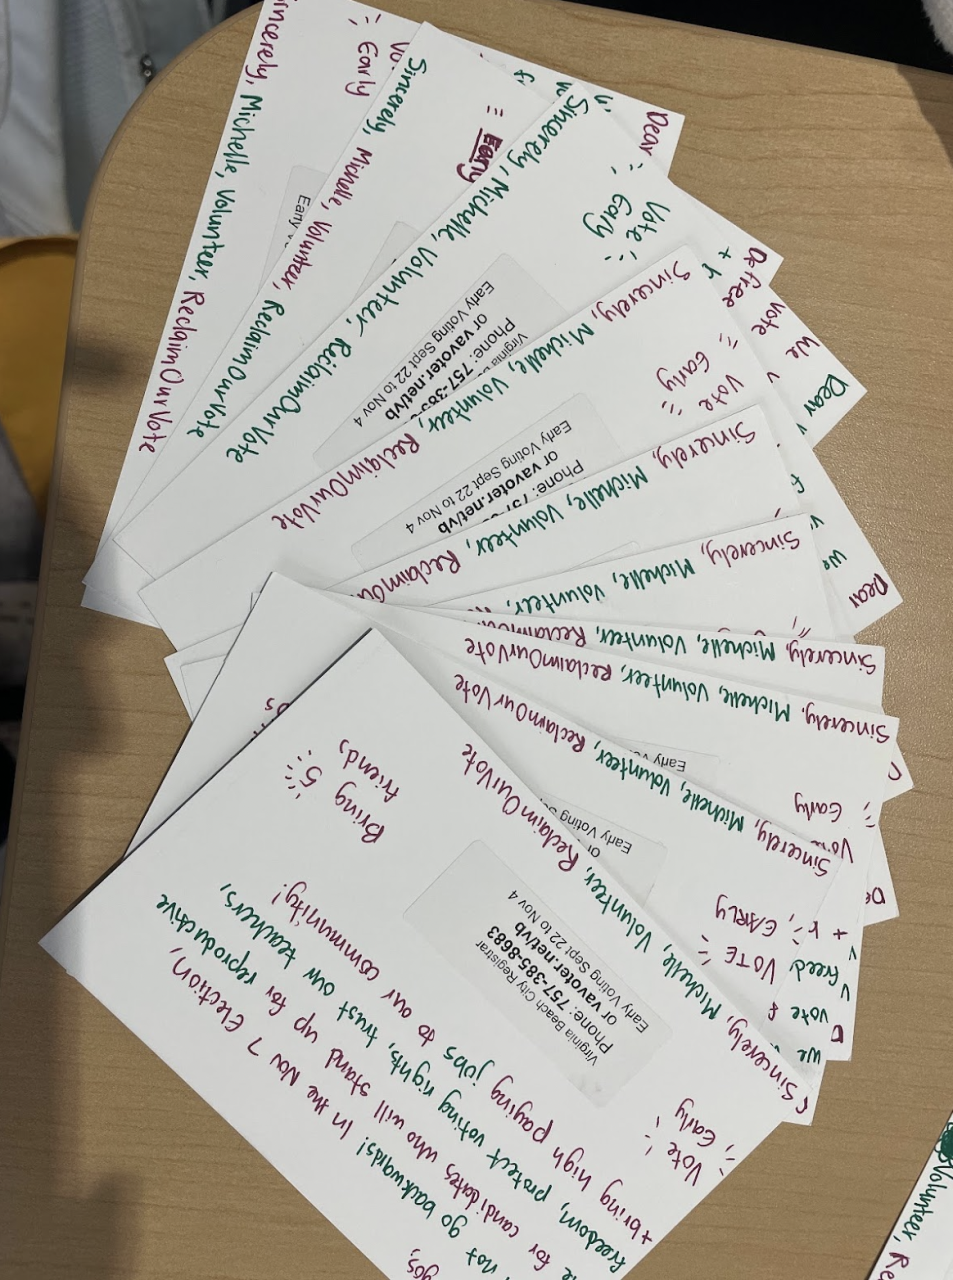 go backwards! In the Nov 7 Election,
for candidates who will stand up for reproductive
freedom, protect voting rights, trust our teachers,
+ bring high paying jobs to our community!
Vote
Early
Virginia Beach City Registrar
Phone: 757-385-8683
or vavoter.net/vb
Early Voting Sept 22 to Nov 4
Bring 5
friends
Sincerely, Michelle, Volunteer, ReclaimOurVote
VOTE
EARLY
Early Voting
Sincerely, Michelle, Volunteer, ReclaimOurVote
Early
Early
Sincerely, Michelle, Volunteer, ReclaimOurVote
Sincerely, Michelle, Volunteer,
Sincerely, Michelle, Volunteer,
Sincerely, Michelle, Volunteer,
Vote
Early
Phone:
or vavoter.net/vb
Early Voting Sept 22 to Nov 4
Sincerely, Michelle, Volunteer, ReclaimOurVote
Vote
Early
Virginia
Phone: 757-385-
or vavoter.net/vb
Early Voting Sept 22 to Nov 4
Sincerely, Michelle, Volunteer, ReclaimOurVote
Early
Sincerely, Michelle, Volunteer, ReclaimOurVote
Early
Early
Sincerely, Michelle, Volunteer, ReclaimOurVote
Dear
free
vote
we
Dear
we
Dear
vote
we
Volunteer,